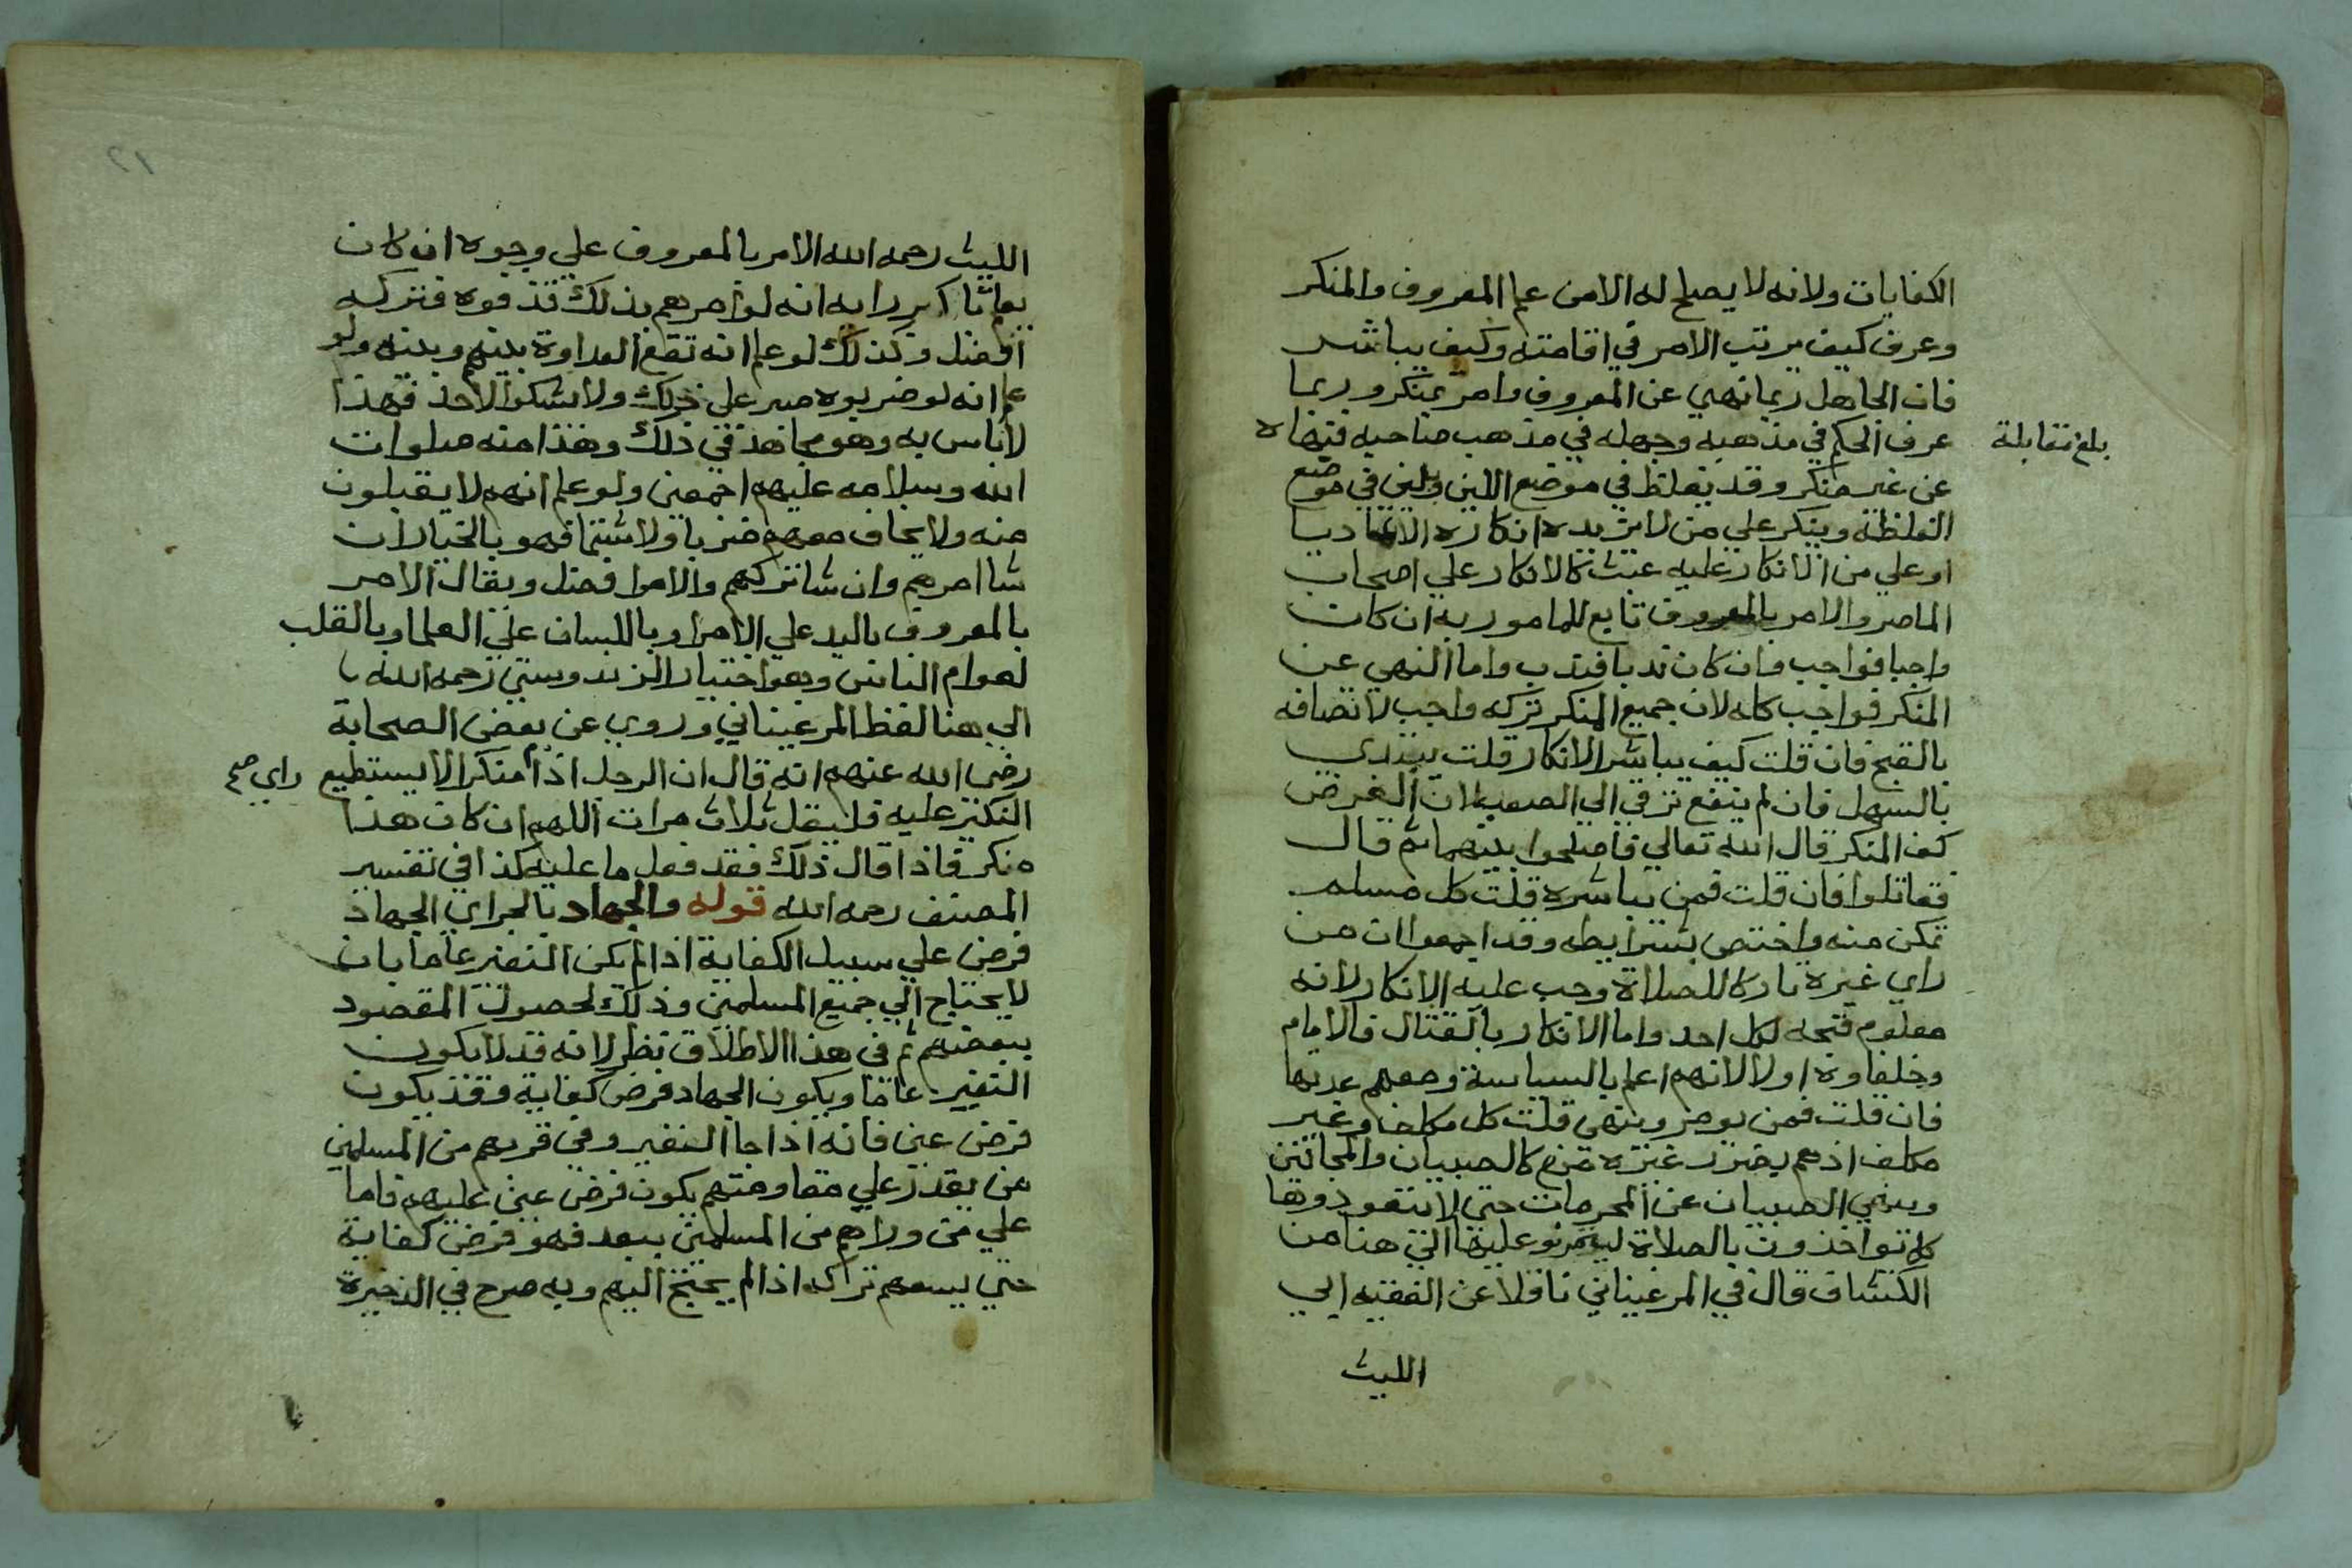 الكفايات ولانه لا يصلح له الا من علم المعروف والمنكر
وعرف كيف يرتب الامر في اقامته وكيف يباشر
فان الجاهل ربما نهي عن المعروف وامر بمنكر وربما
عرف الحكم في مذهبه وجهله في مذهب صاحبه فنهاه
بلغ مقابلة
عن غير منكر وقد يغلظ في موضع اللين ويلين في موضع
الغلظة وينكر علي من لا يزيده انكاره الا تماديا
او علي من الانكار عليه عبث كالانكار علي اصحاب
الماصر والامر بالمعروف تابع للمامور به ان كان
واجبا فواجب وان كان ندبا فندب واما النهي عن
المنكر فواجب كله لان جميع المنكر تركه واجب لاتصافه
بالقبح فان قلت كيف يباشر الانكار قلت يبتدي
بالسهل فان لم ينفع ترقي الي الصعب لان الغرض
كف المنكر قال الله تعالي فاصلحوا بينهما ثم قال
فقاتلوا فان قلت فمن يباشره قلت كل مسلم
تمكن منه واختص بشرايطه وقد اجمعوا ان من
راي غيره تاركا للصلاة وجب عليه الانكار لانه
معلوم قبحه لكل احد واما الانكار بالقتال فالامام
وخلفاوه اولا لانهم اعلم بالسياسة ومعهم عدتها
فان قلت فمن يومر وينهي قلت كل مكلف وغير
مكلف اذ هم بضرر غيره منع كالصبيان والمجانين
وينهي الصبيان عن المحرمات حتي لا يتعودوها
كما يواخذون بالصلاة ليتمرنو عليها الي هنا من
الكشاف قال في المرغيناني ناقلا عن الفقيه ابي
الليث
الليث رحمه الله الامر بالمعروف علي وجوه ان كان
يعلم باكبر رايه انه لو امرهم بذلك قذفوه فتركه
افضل وكذلك لو علم انه تقع العداوة بينهم وبينه ولو
علم انه لو ضربوه صبر علي ذلك ولا يشكوا لاحد فهذا
لا باس به وهو مجاهد في ذلك وهذا منه صلوات
الله وسلامه عليهم اجمعين ولو علم انهم لا يقبلون
منه ولا يخاف معهم ضربا ولا شتما فهو بالخيار ان
شا امرهم وان شا تركهم والامر افضل ويقال الامر
بالمعروف باليد علي الامرا وباللسان علي العلما وبالقلب
لعوام الناس وهو اختيار الزندوستي رحمه الله
الي هنا لفظ المرغيناني وروي عن بعض الصحابة
رضي الله عنهم انه قال ان الرجل اذا منكرا لا يستطيع
راي صح
النكير عليه فليقل ثلاث مرات اللهم ان كان هذا
منكر فاذا قال ذلك فقد فعل ما عليه كذا في تفسير
المصنف رحمه الله قوله والجهاد بالجر اي الجهاد
فرض علي سبيل الكفاية اذا لم يكن النفير عاما بان
لا يحتاج الي جميع المسلمين وذلك لحصول المقصود
ببعضهم ثم في هذا الاطلاق نظر لانه قد لا يكون
النفير عاما ويكون الجهاد فرض كفاية وقد يكون
فرض عين فانه اذا جا النفير وفي قربهم من المسلمين
من يقدر علي مقاومتهم يكون فرض عين عليهم فاما
علي من وراهم من المسلمين ببعد فهو فرض كفاية
حتي يسعهم تركه اذا لم يحتج اليهم وبه صرح في الذخيرة